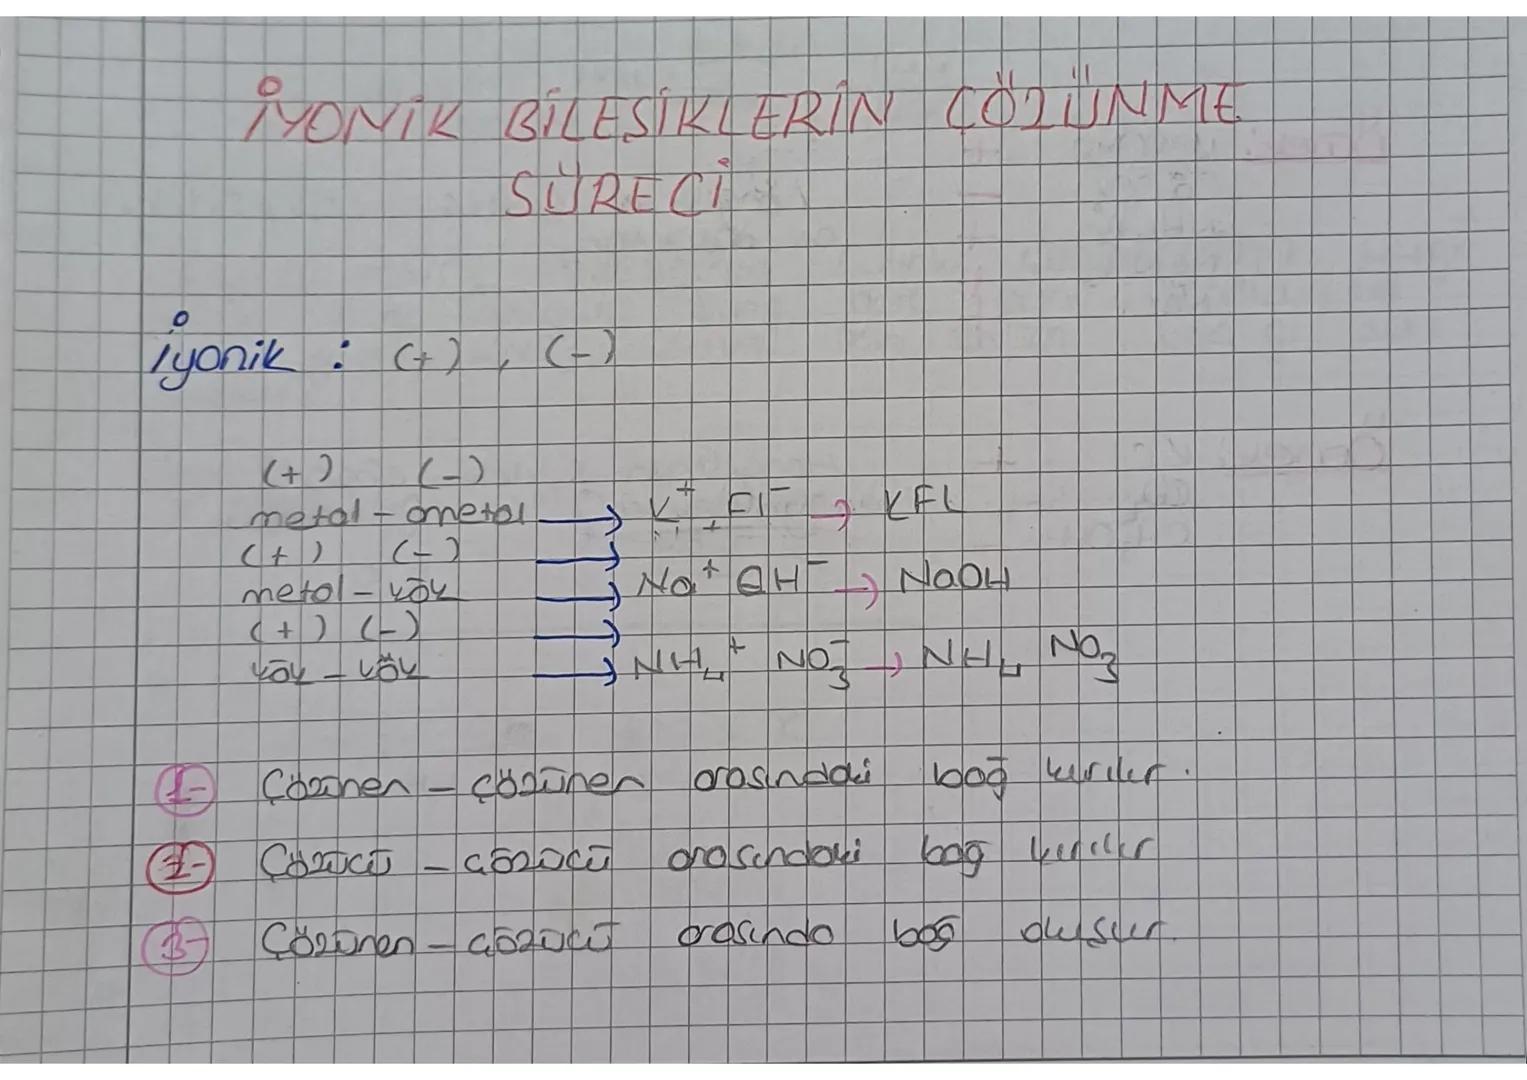 İYONİK BİLEŞİKLERİN ÇÖZÜNME
SÜRECİ
İyonik : (+) , (-)
(+) (-)
metal - ametal → K⁺ , Fl⁻ → KFl
(+) (-) →
metal - kök → Na⁺ OH⁻ → NaOH
(+) (-) →
kök - kök → NH₄⁺ NO₃⁻ → NH₄ NO₃
1- Çözünen - çözünen arasındaki bağ kırılır.
2- Çözücü - çözücü arasındaki bağ kırılır
3- Çözünen - çözücü arasında bağ oluşur.